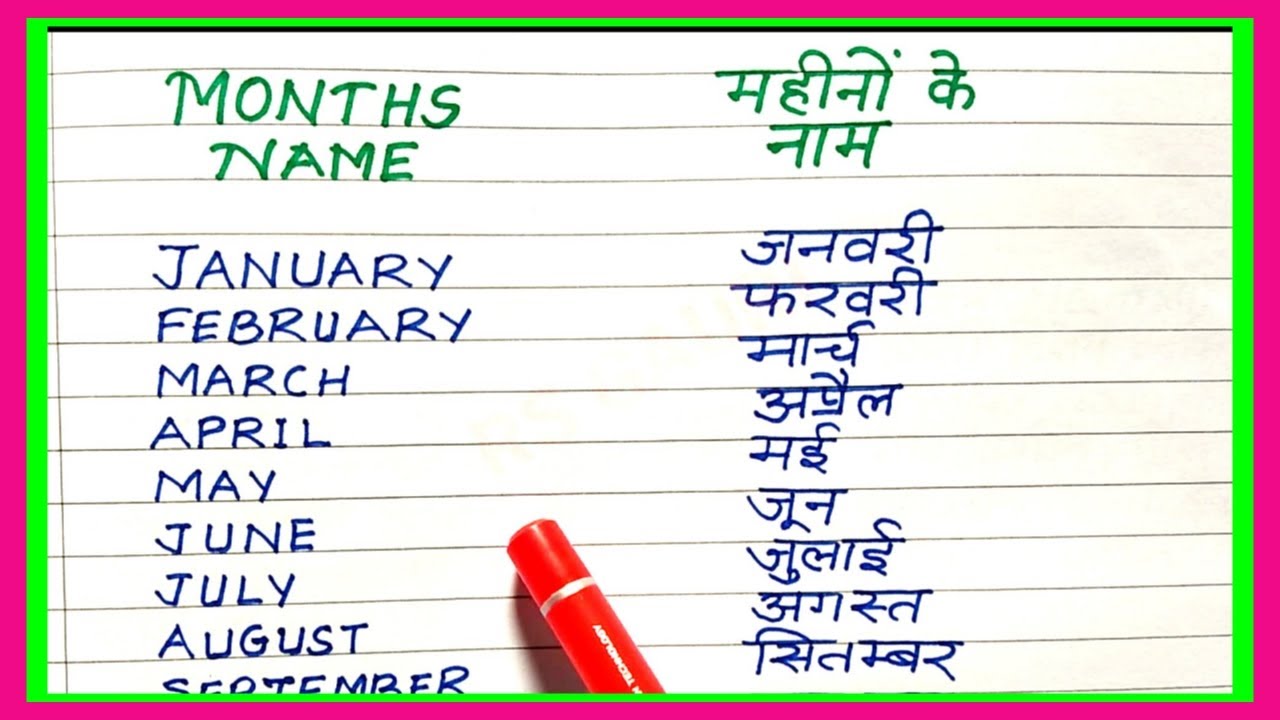 MONTHS NAME
महीनों के नाम
JANUARY जनवरी
FEBRUARY फरवरी
MARCH मार्च
APRIL अप्रैल
MAY मई
JUNE जून
JULY जुलाई
AUGUST अगस्त
SEPTEMBER सितम्बर
TECHNOLOGY